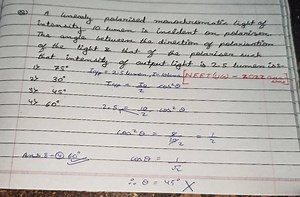 A linearly polarised monochromatic light of
intensity 10 lumen is incident on polariser
The angle between the direction of polarisation
of the light & that of the polariser such
that intensity of output light is 2.5 lumen is:-
1) 75° I = 2.5 lumen, [NEET (UG) - 2022
2) 30° I = cos²θ
3) 45°
4) 60° 2.5 = 10/2 cos²θ
cos²θ = 5/10 = 1/2
Ans:- 4 60° cosθ = 1/√2
∴ θ = 45° X